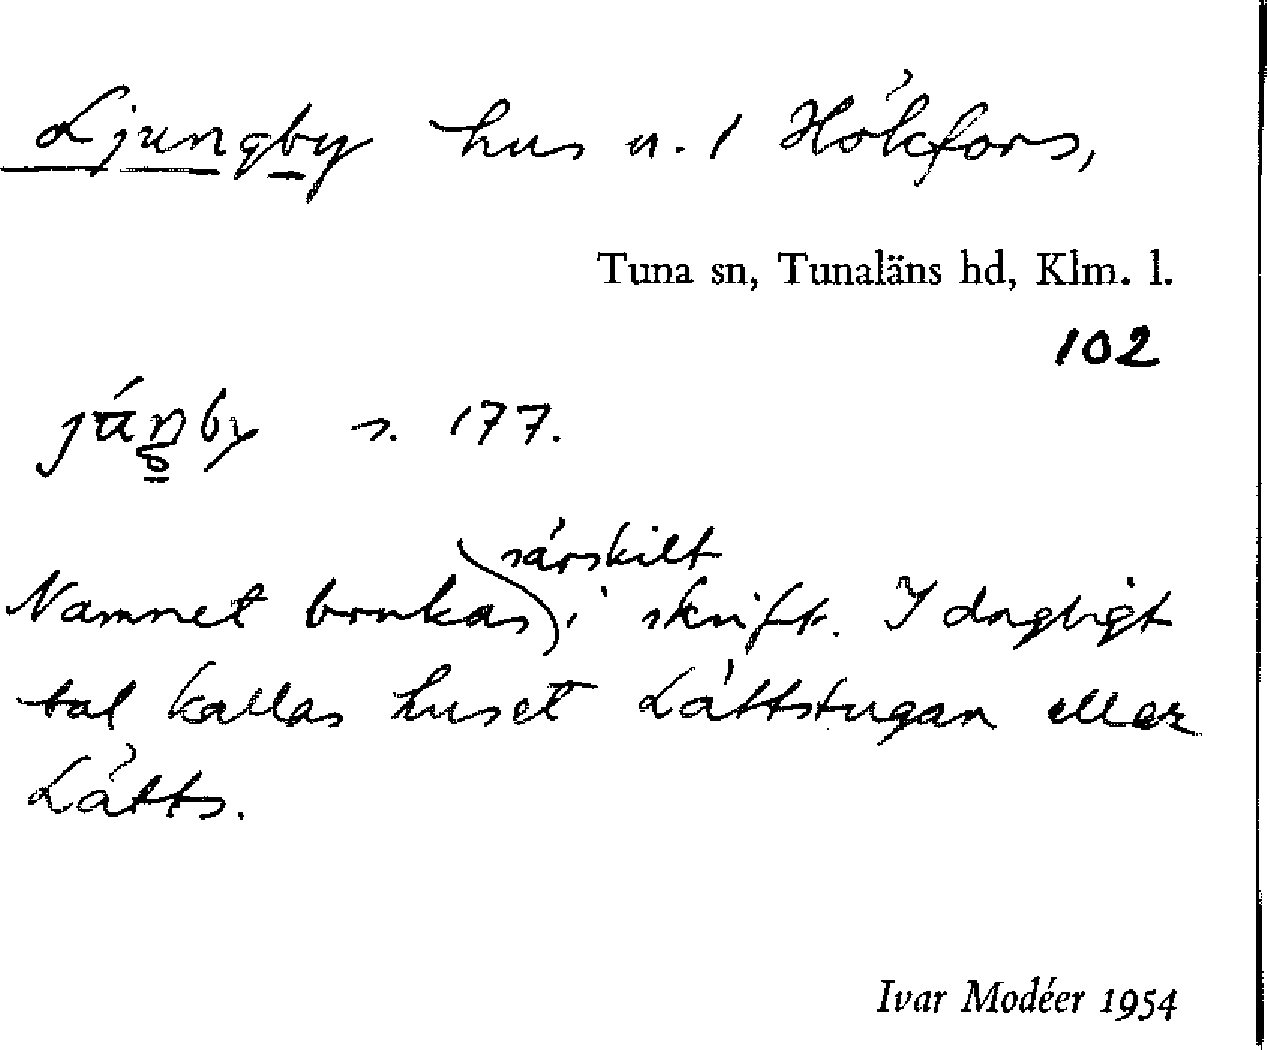 Ljungby hus u. / Hökfors,
Tuna sn, Tunaläns hd, Klm. l.
102
s. 177.
Namnet brukas särskilt i skrift. I dagligt
tal kallas huset Låttstugan eller
Låtts.
Ivar Modéer 1954